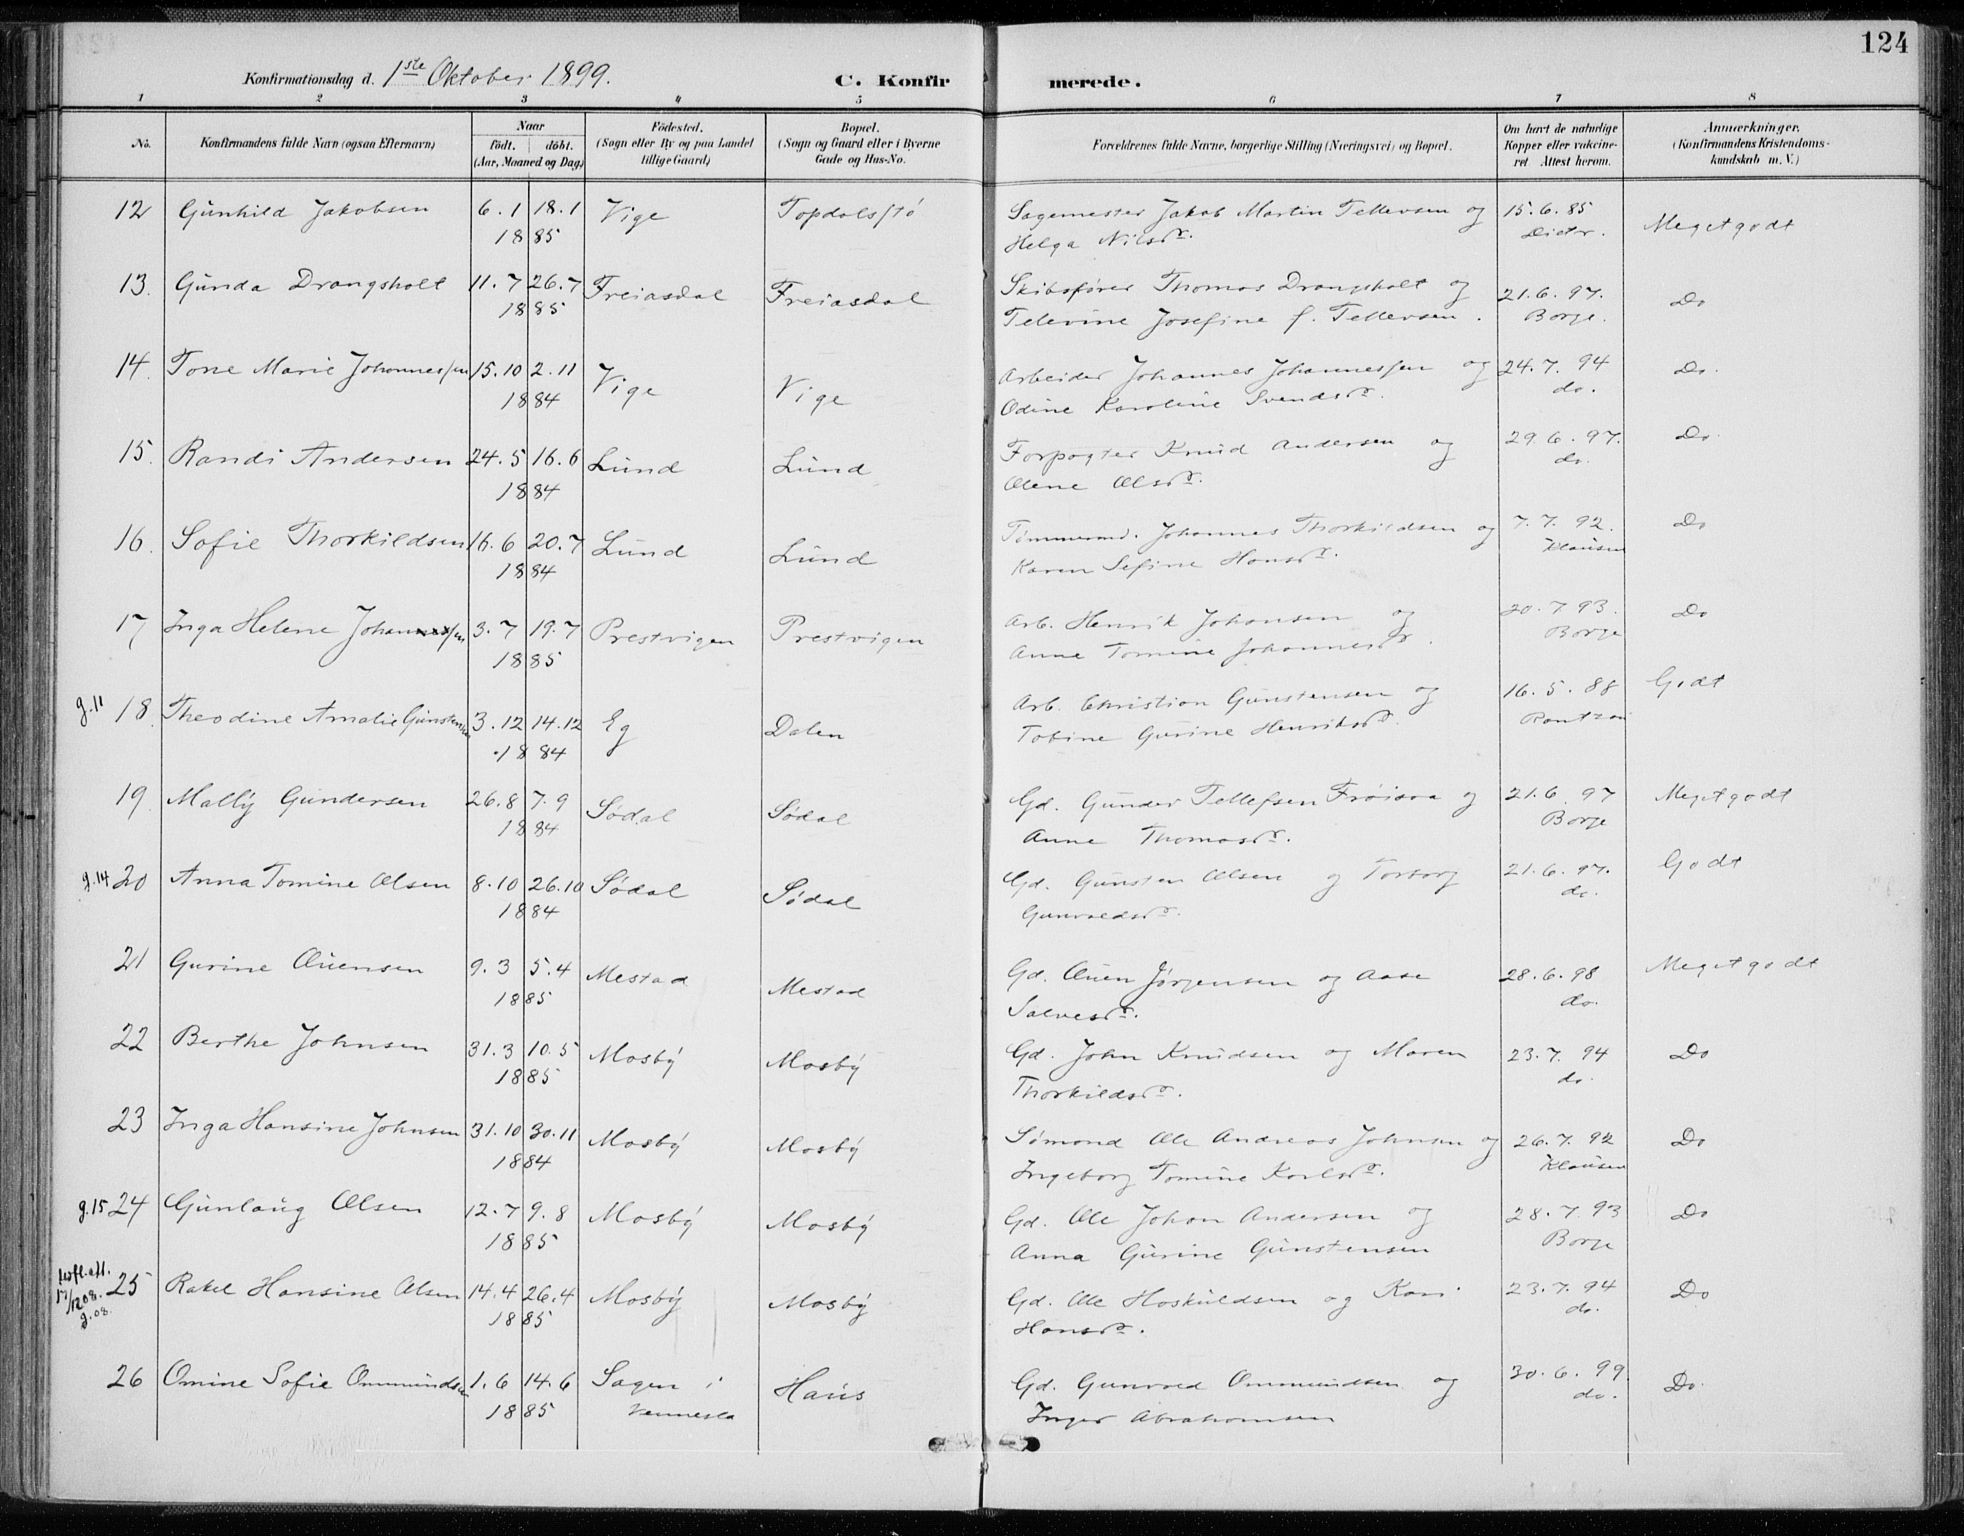 124
Konfirmationsdag d. 1ste Oktober 1899.
C. Konfirmerede.
1 2 3 4 5 6 7 8
No.
Konfirmandens fulde Navn (ogsaa Efternavn)
Naar
født. døbt.
(Aar, Maaned og Dag)
Fødested.
(Sogn eller By og paa Landet
tillige Gaard)
Bopæl.
(Sogn og Gaard eller i Byerne
Gade og Hus-No.
Forældrenes fulde Navne, borgerlige Stilling (Næringsvei) og Bopæl.
Om havt de naturlige
Kopper eller vaccine-
ret Attest herom.
Anmærkninger.
(Konfirmandens Kristendoms-
kundskab m. V.)
12 Gunhild Jakobsen 6.1 18.1 Vige Topdalsstø Sagmester Jakob Martin Tellevsen og 15.6.85 Meget godt
1885 Helga Nilsdr.
13. Gunda Drangsholt 11.7 26.7 Freiasdal Freiasdal Skibsfører Thomas Drangsholt og 21.6.97. Do
1885 Televine Josefine f. Tellevsen. Borge.
14. Tone Marie Johannessen 15.10 2.11 Vige Vige Arbeider Johannes Johannessen og 24.7.94 Do.
1884 Odine Karoline Svendsdr. do.
15. Randi Andersen 24.5 16.6 Lund Lund Forpagter Knud Andersen og 29.6.97. Do.
1884 Olene Olsdr. do.
16. Sofie Thorkildsen 16.6 20.7 Lund Lund Tømmermd. Johannes Thorkildsen og 7.7.92. Do
1884 Karen Sefine Hansdr. Klausen
17 Inga Helene 3.7 19.7 Prestvigen Prestvigen Arb. Henrik Johansen og 20.7.93. Do
1885 Anne Tomine Johannesdr. Borge
g.11 18. Theodine Amalie Gunstensen 3.12 14.12 Eg Dalen Arb. Christian Gunstensen og 16.5.88 Godt
1884 Tobine Gurine Henriksdr.
19. Mally Gundersen 26.8 7.9 Sødal Sødal Gd. Gunder Tellefsen Frøisaa og 21.6.97 Meget godt
1884 Anne Thomasdr. Borge
g.14 20 Anna Tomine Olsen 8.10 26.10 Sødal Sødal Gd. Gunsten Olsen og Torborg 21.6.97. Godt
1884 Gunvaldsdr. do.
21 Gurine Ouensen 9.3 5.4 Mestad Mestad Gd. Ouen Jørgensen og Aase 28.6.98 Meget godt
1885 Salvesdr. do.
22 Berthe Johnsen 31.3 10.5 Mosby Mosby Gd. John Knudsen og Maren 23.7.94 Do
1885 Thorkildsdr. do.
23 Inga Hansine Johnsen 31.10 30.11 Mosby Mosby Sømand Ole Andreas Johnsen og 26.7.92 Do
1884 Ingeborg Tomine Karlsdr. Klausen
g.15 24 Gunlaug Olsen 12.7 9.8 Mosby Mosby Gd. Ole Johan Andersen og 28.7.93 Do
1885 Anna Gurine Gunstensen Borge
25 Rakel Hansine Olsen 14.4 26.4 Mosby Mosby Gd. Ole Haskuldsen og Kari 23.7.94 Do
g.08. 1885 Hansdr. do.
26 Omine Sofie Ommundsen 1.6 14.6 Sagen i Haus Gd. Gunvald Ommundsen og 30.6.99. Do.
1885 Vennesla Inger Abrahamsen do.